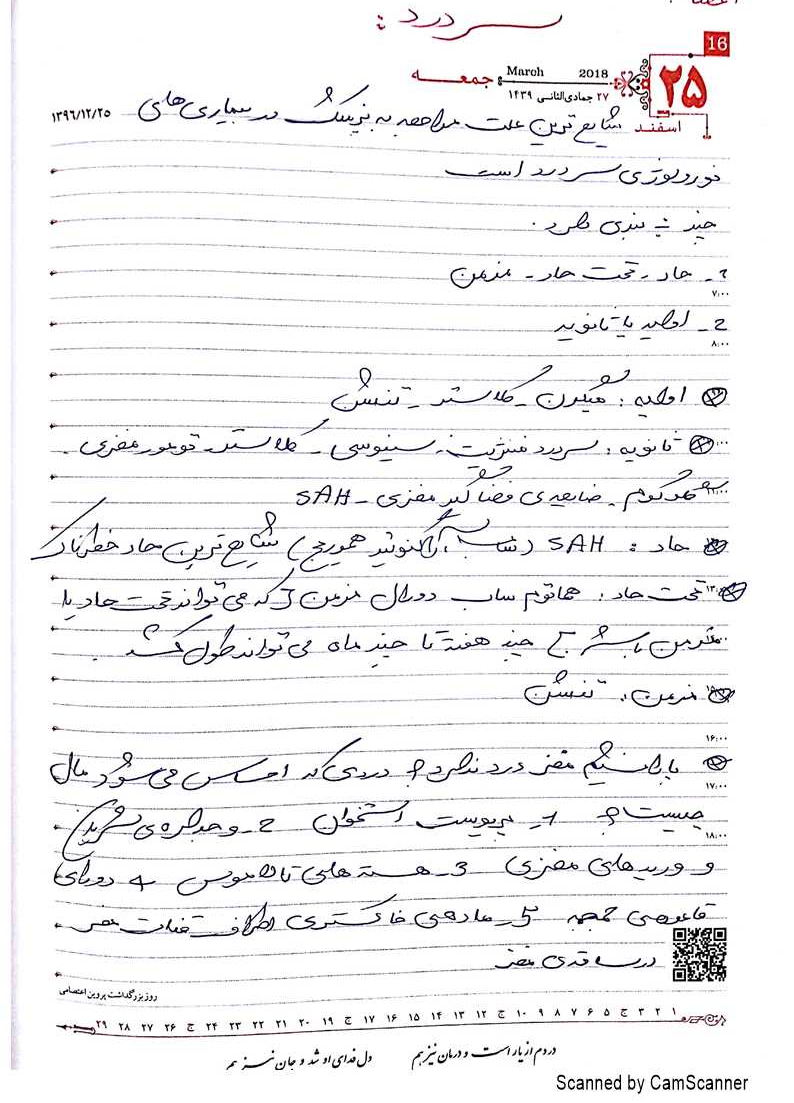 سردرد :
16
March 2018 جمعه
۲۷ جمادی‌الثانی ۱۴۳۹
۲۵
اسفند
۱۳۹۶/۱۲/۲۵
شایع ترین علت مراجعه به پزشک در بیماری های
نورولوژی سردرد است
چند تیپ بندی دارد.
1- حاد - تحت حاد - مزمن
۷:۰۰
2- اولیه یا ثانویه
۸:۰۰
اولیه : میگرن - کلاستر - تنشن
ثانویه : سردرد - سینوسی - کلاستر - تومور مغزی -
گلوکوم - ضایعه‌ی فضاگیر مغزی - SAH
حاد : SAH (ساب آراکنوئید هموریج) شایع ترین حاد خطرناک
تحت حاد : هماتوم ساب دورال مزمن که می تواند تحت حاد یا
مزمن باشد چند هفته تا چند ماه می تواند طول بکشد.
مزمن : تنشن
۱۶:۰۰
مغز درد ندارد دردی که احساس می شود مال
۱۷:۰۰
چیست؟ 1- پریوست استخوان 2- و جداره‌ی شریان
۱۸:۰۰
و وریدهای مغزی 3- هسته های تالاموس 4- دورای
قاعده‌ی جمجمه 5- ماده‌ی خاکستری اطراف قنات مغز
در ساقه‌ی مغز
روز بزرگداشت پروین اعتصامی
۱ ۲ ۳ ج ۵ ۶ ۷ ۸ ۹ ۱۰ ج ۱۲ ۱۳ ۱۴ ۱۵ ۱۶ ۱۷ ج ۱۹ ۲۰ ۲۱ ۲۲ ۲۳ ۲۴ ج ۲۶ ۲۷ ۲۸ ۲۹
دردم از یار است و درمان نیز هم دل فدای او شد و جان نیز هم
Scanned by CamScanner